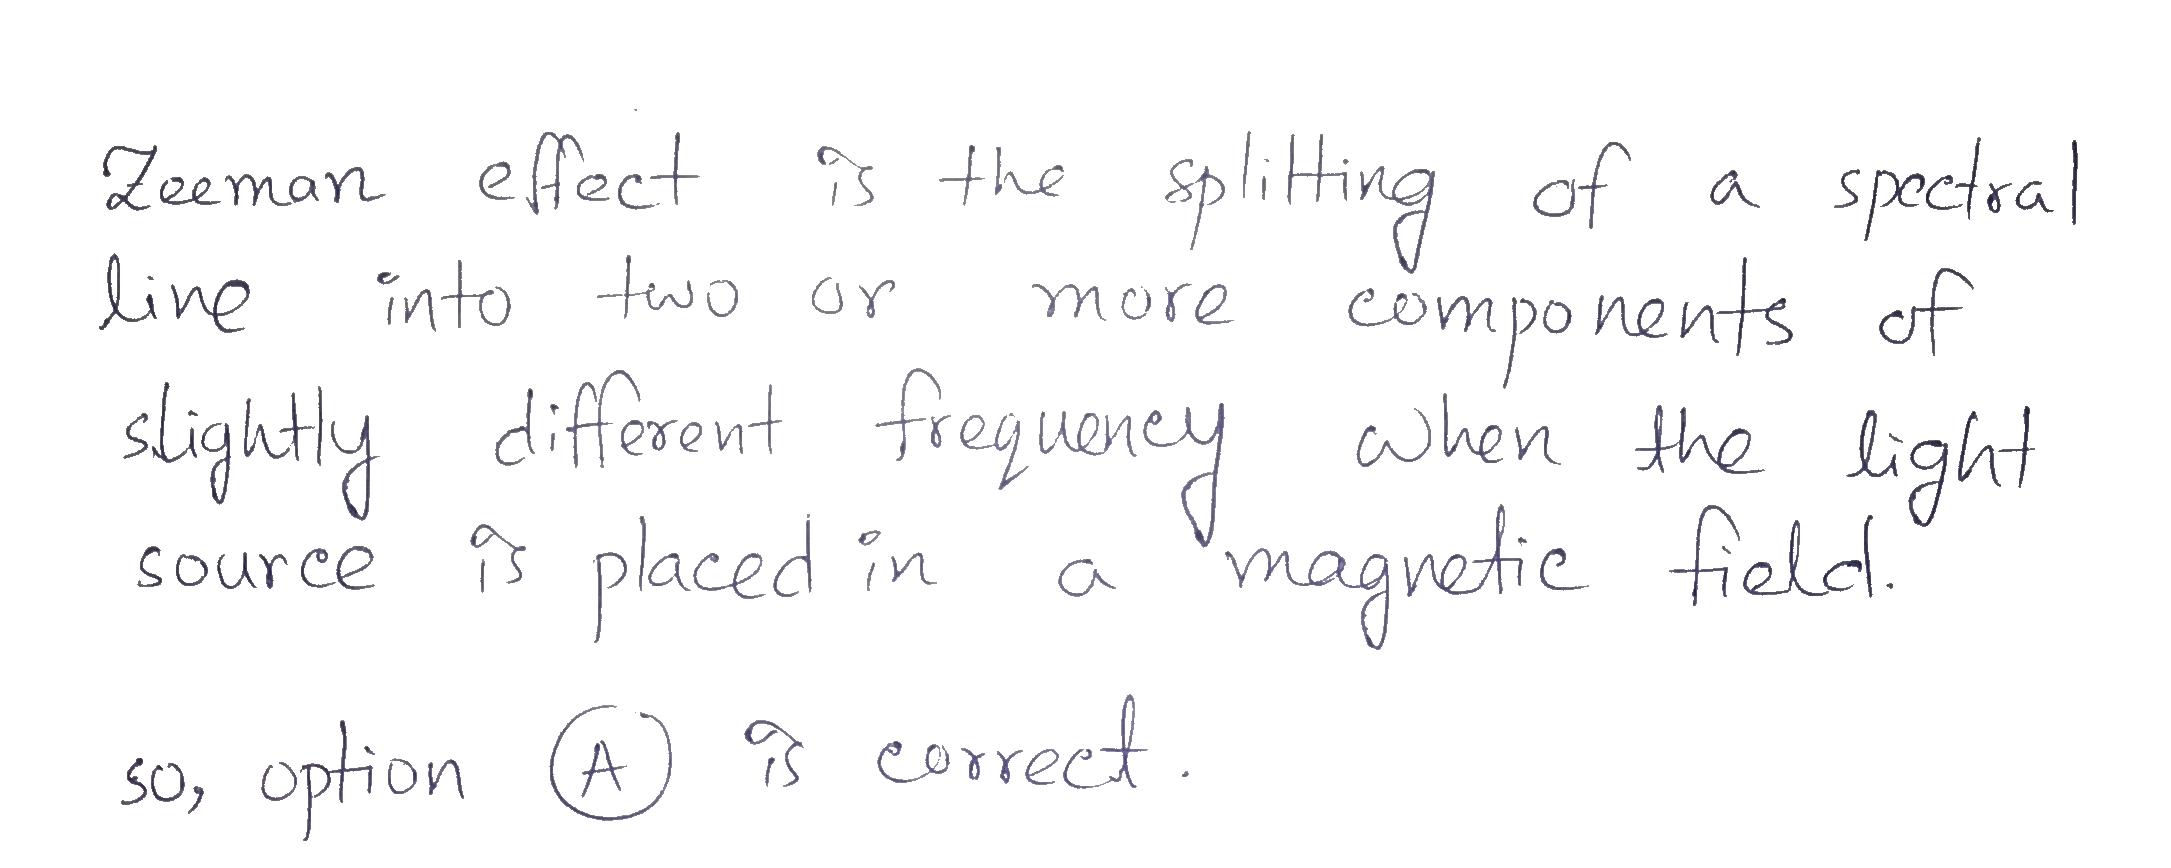 Zeeman effect is the splitting of a spectral
line into two or more components of
slightly different frequency when the light
source is placed in a magnetic field.
so, option A is correct.